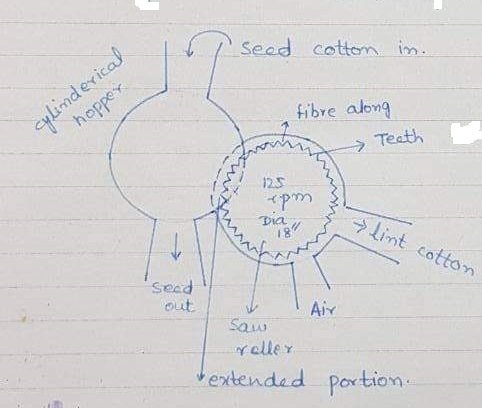 Seed cotton in.
cylinderical
hopper
fibre along
Teeth
125
rpm
Dia
18"
lint cotton
Seed
out
Air
Saw
roller
extended portion.